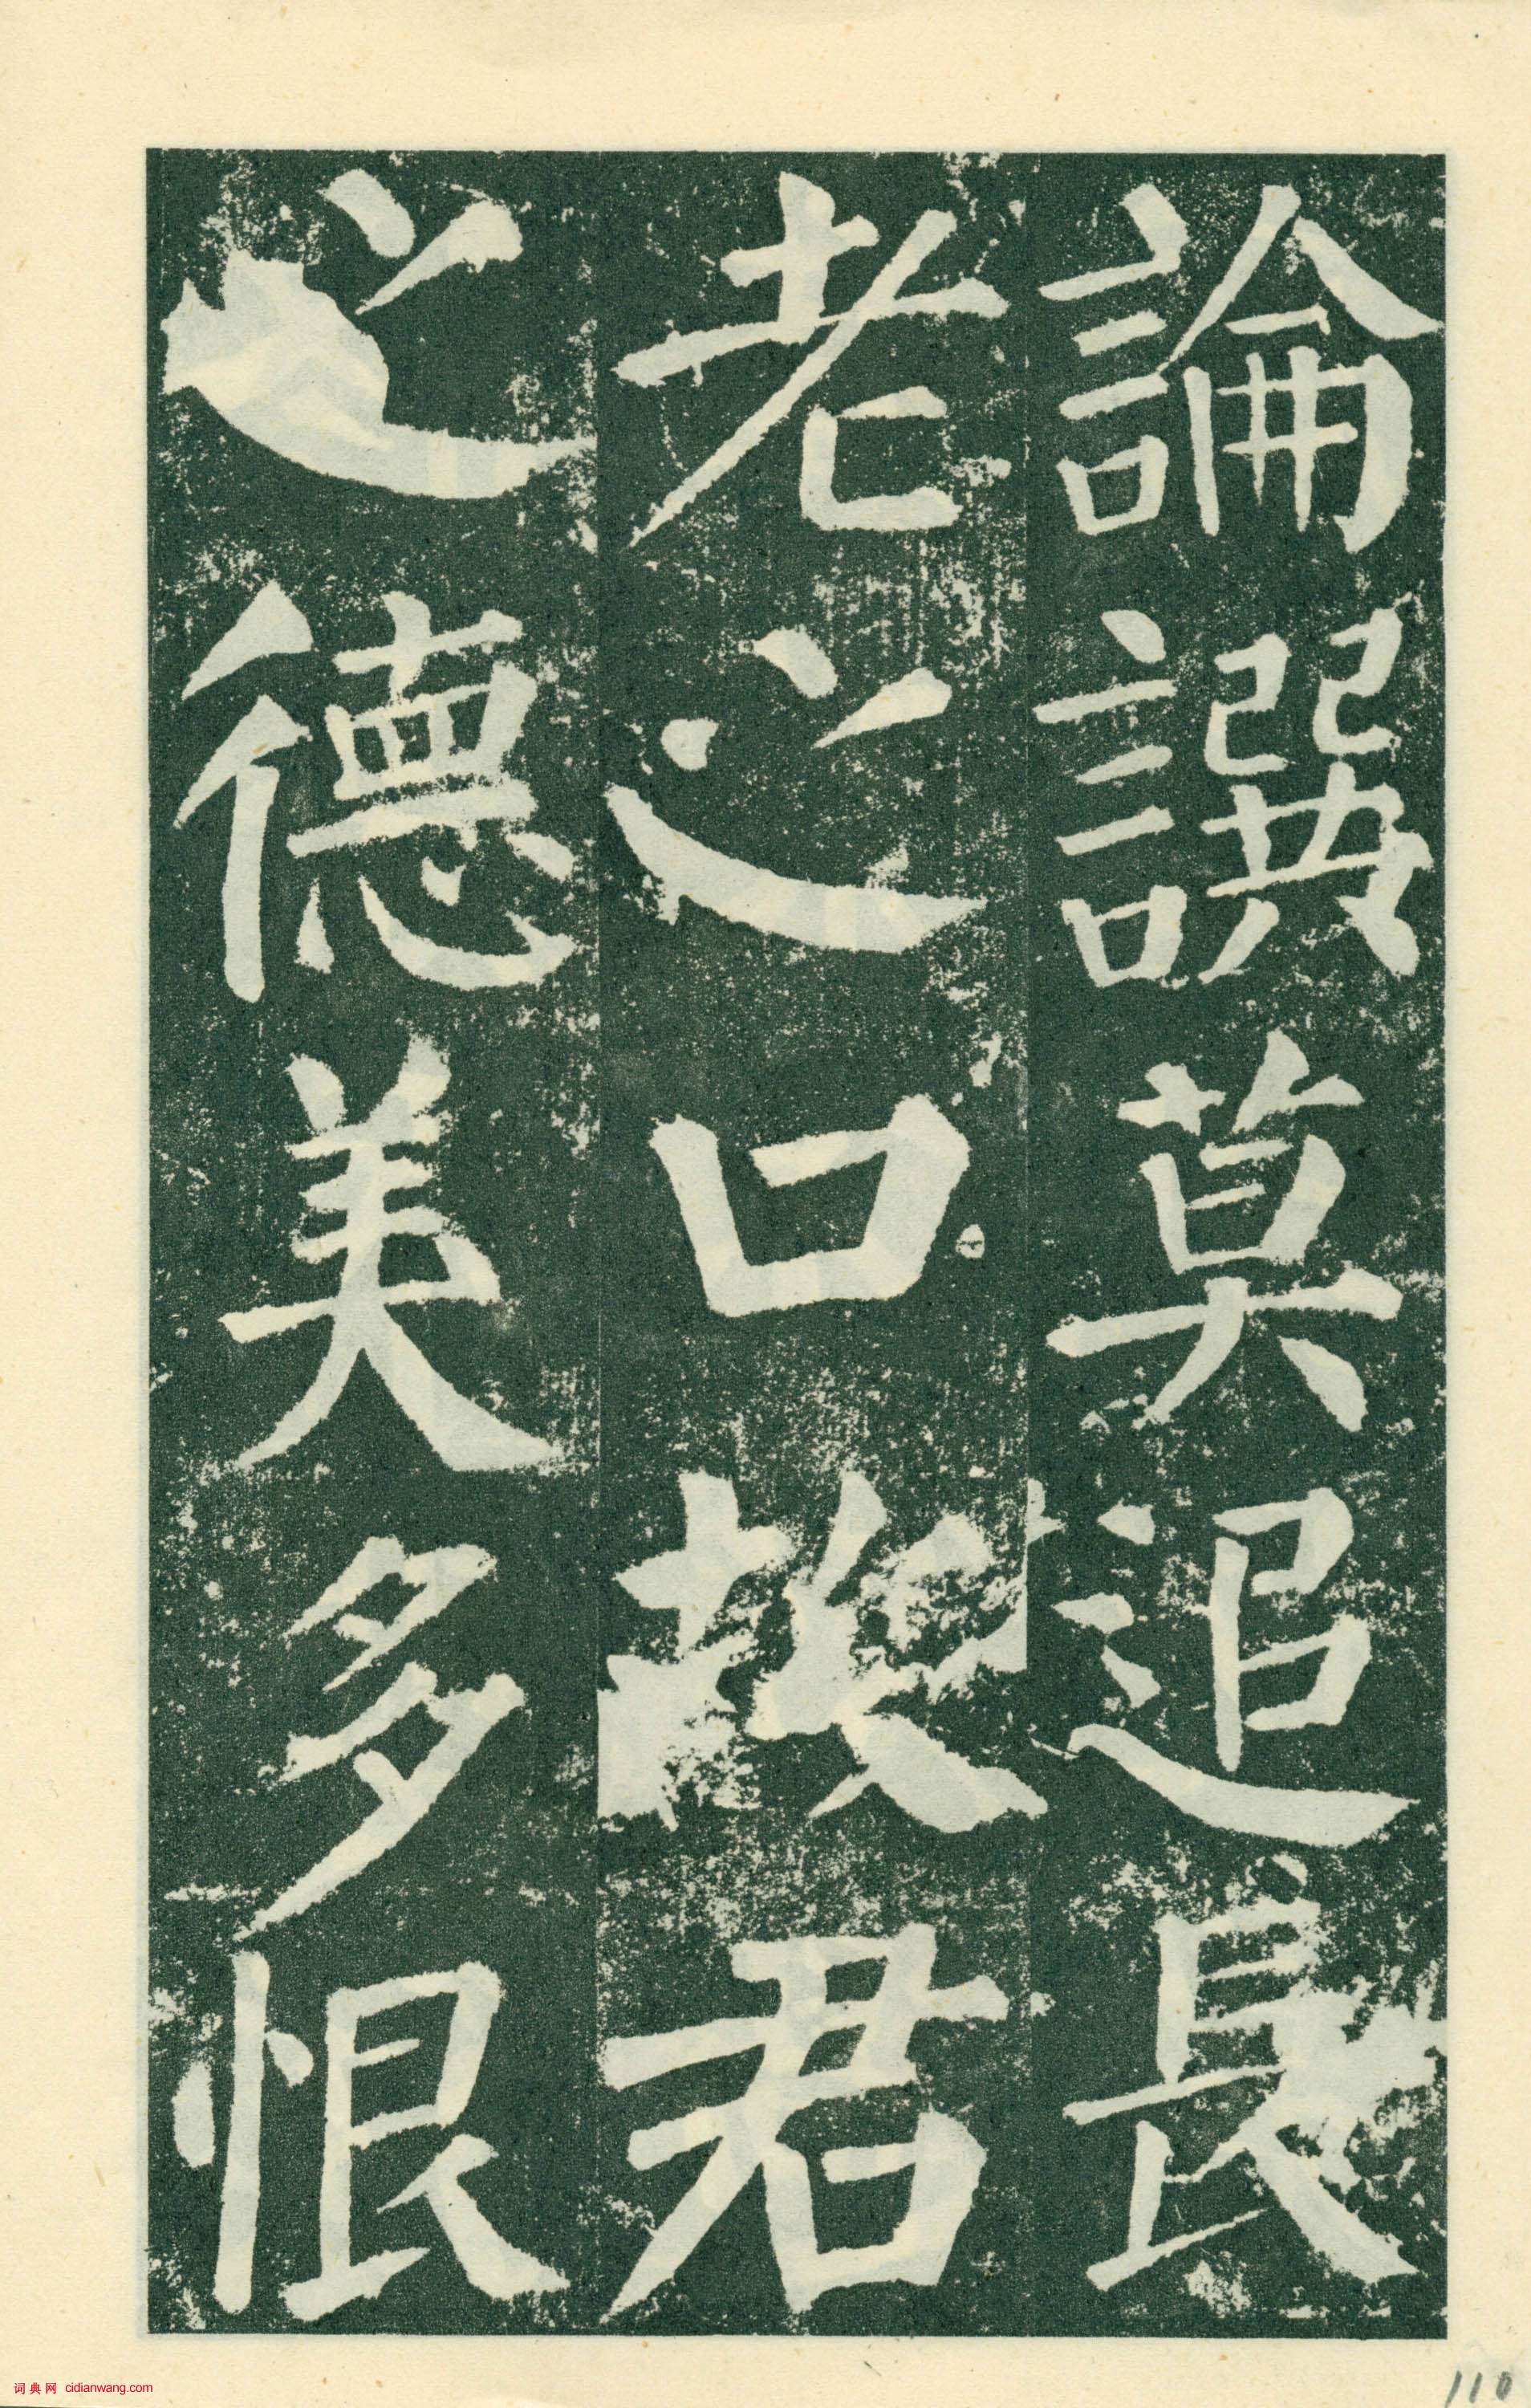 論譔莫追長
老之口故君
之德美多恨
词典网 cidianwang.com
110